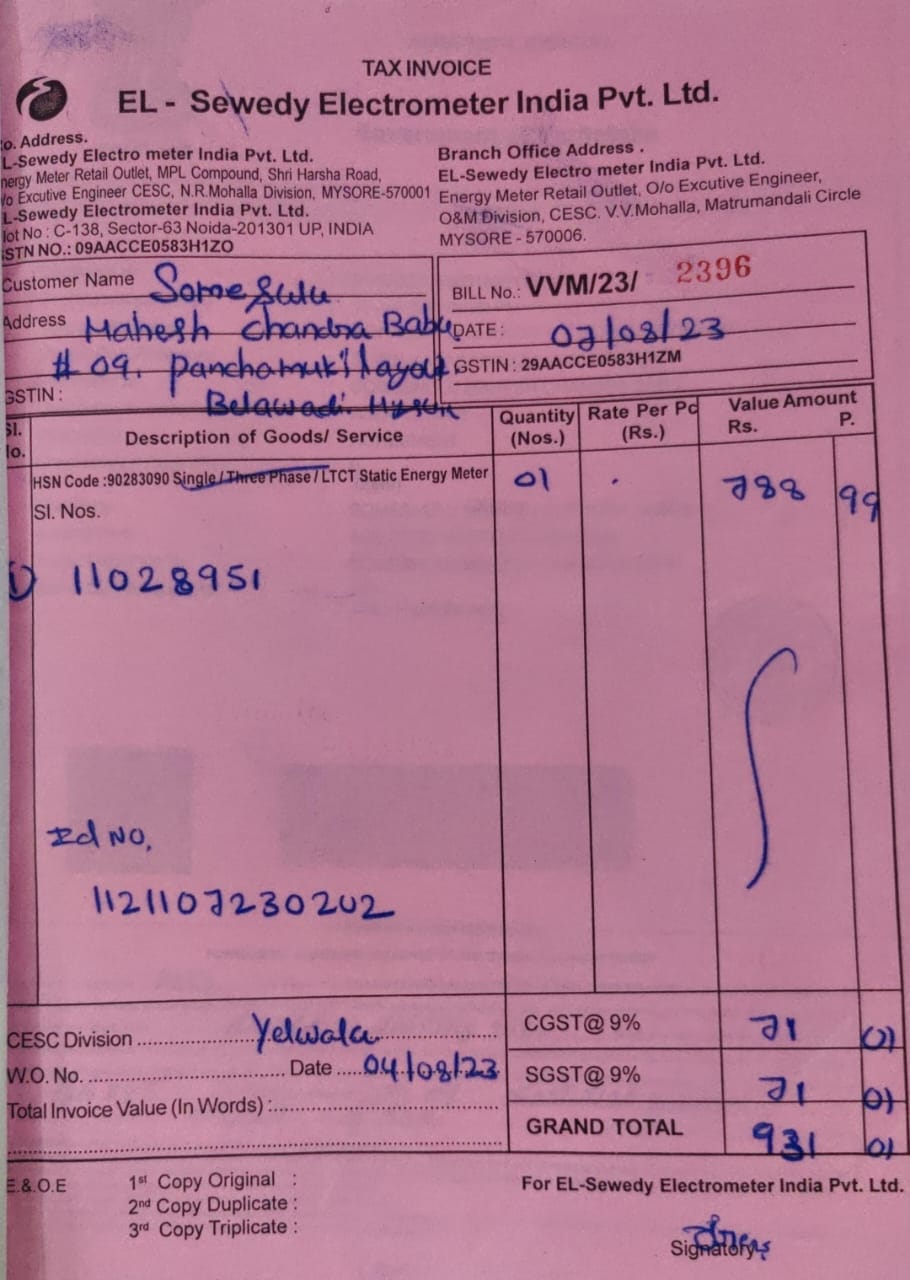 TAX INVOICE
EL - Sewedy Electrometer India Pvt. Ltd.
o. Address.
L-Sewedy Electro meter India Pvt. Ltd.
nergy Meter Retail Outlet, MPL Compound, Shri Harsha Road,
/o Excutive Engineer CESC, N.R.Mohalla Division, MYSORE-570001
L-Sewedy Electrometer India Pvt. Ltd.
lot No : C-138, Sector-63 Noida-201301 UP, INDIA
STN NO.: 09AACCE0583H1ZO
Branch Office Address .
EL-Sewedy Electro meter India Pvt. Ltd.
Energy Meter Retail Outlet, O/o Excutive Engineer,
O&M Division, CESC. V.V.Mohalla, Matrumandali Circle
MYSORE - 570006.
Customer Name
Address Mahesh Chandra Babu
# 09. Panchamuk
GSTIN : Belawadi.
BILL No.: VVM/23/ 2396
DATE : 07/08/23
GSTIN : 29AACCE0583H1ZM
Sl. No. Description of Goods/ Service Quantity (Nos.) Rate Per Pc (Rs.) Value Amount Rs. P.
HSN Code :90283090 Single / Three Phase / LTCT Static Energy Meter 01 788 99
Sl. Nos.
1) 11028951
Id No,
1121107230202
CESC Division Yelwala
W.O. No. Date 04/08/23
Total Invoice Value (In Words) :
CGST@ 9% 71 01
SGST@ 9% 71 01
GRAND TOTAL 931 01
E.&.O.E
1st Copy Original :
2nd Copy Duplicate :
3rd Copy Triplicate :
For EL-Sewedy Electrometer India Pvt. Ltd.
Signatory